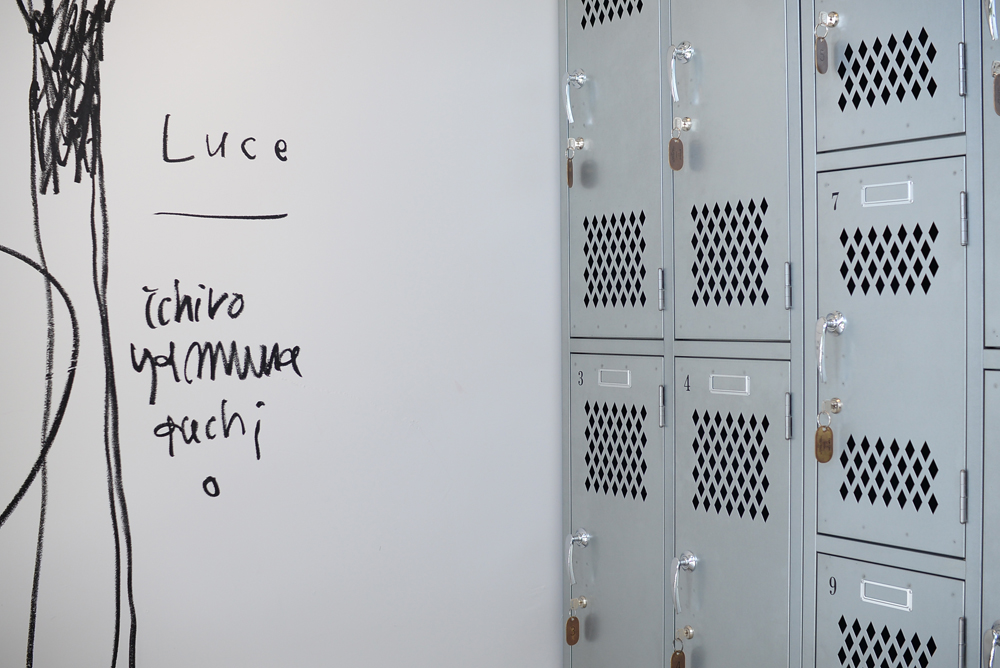 Luce
ichiro
guchi
o
3
4
7
9